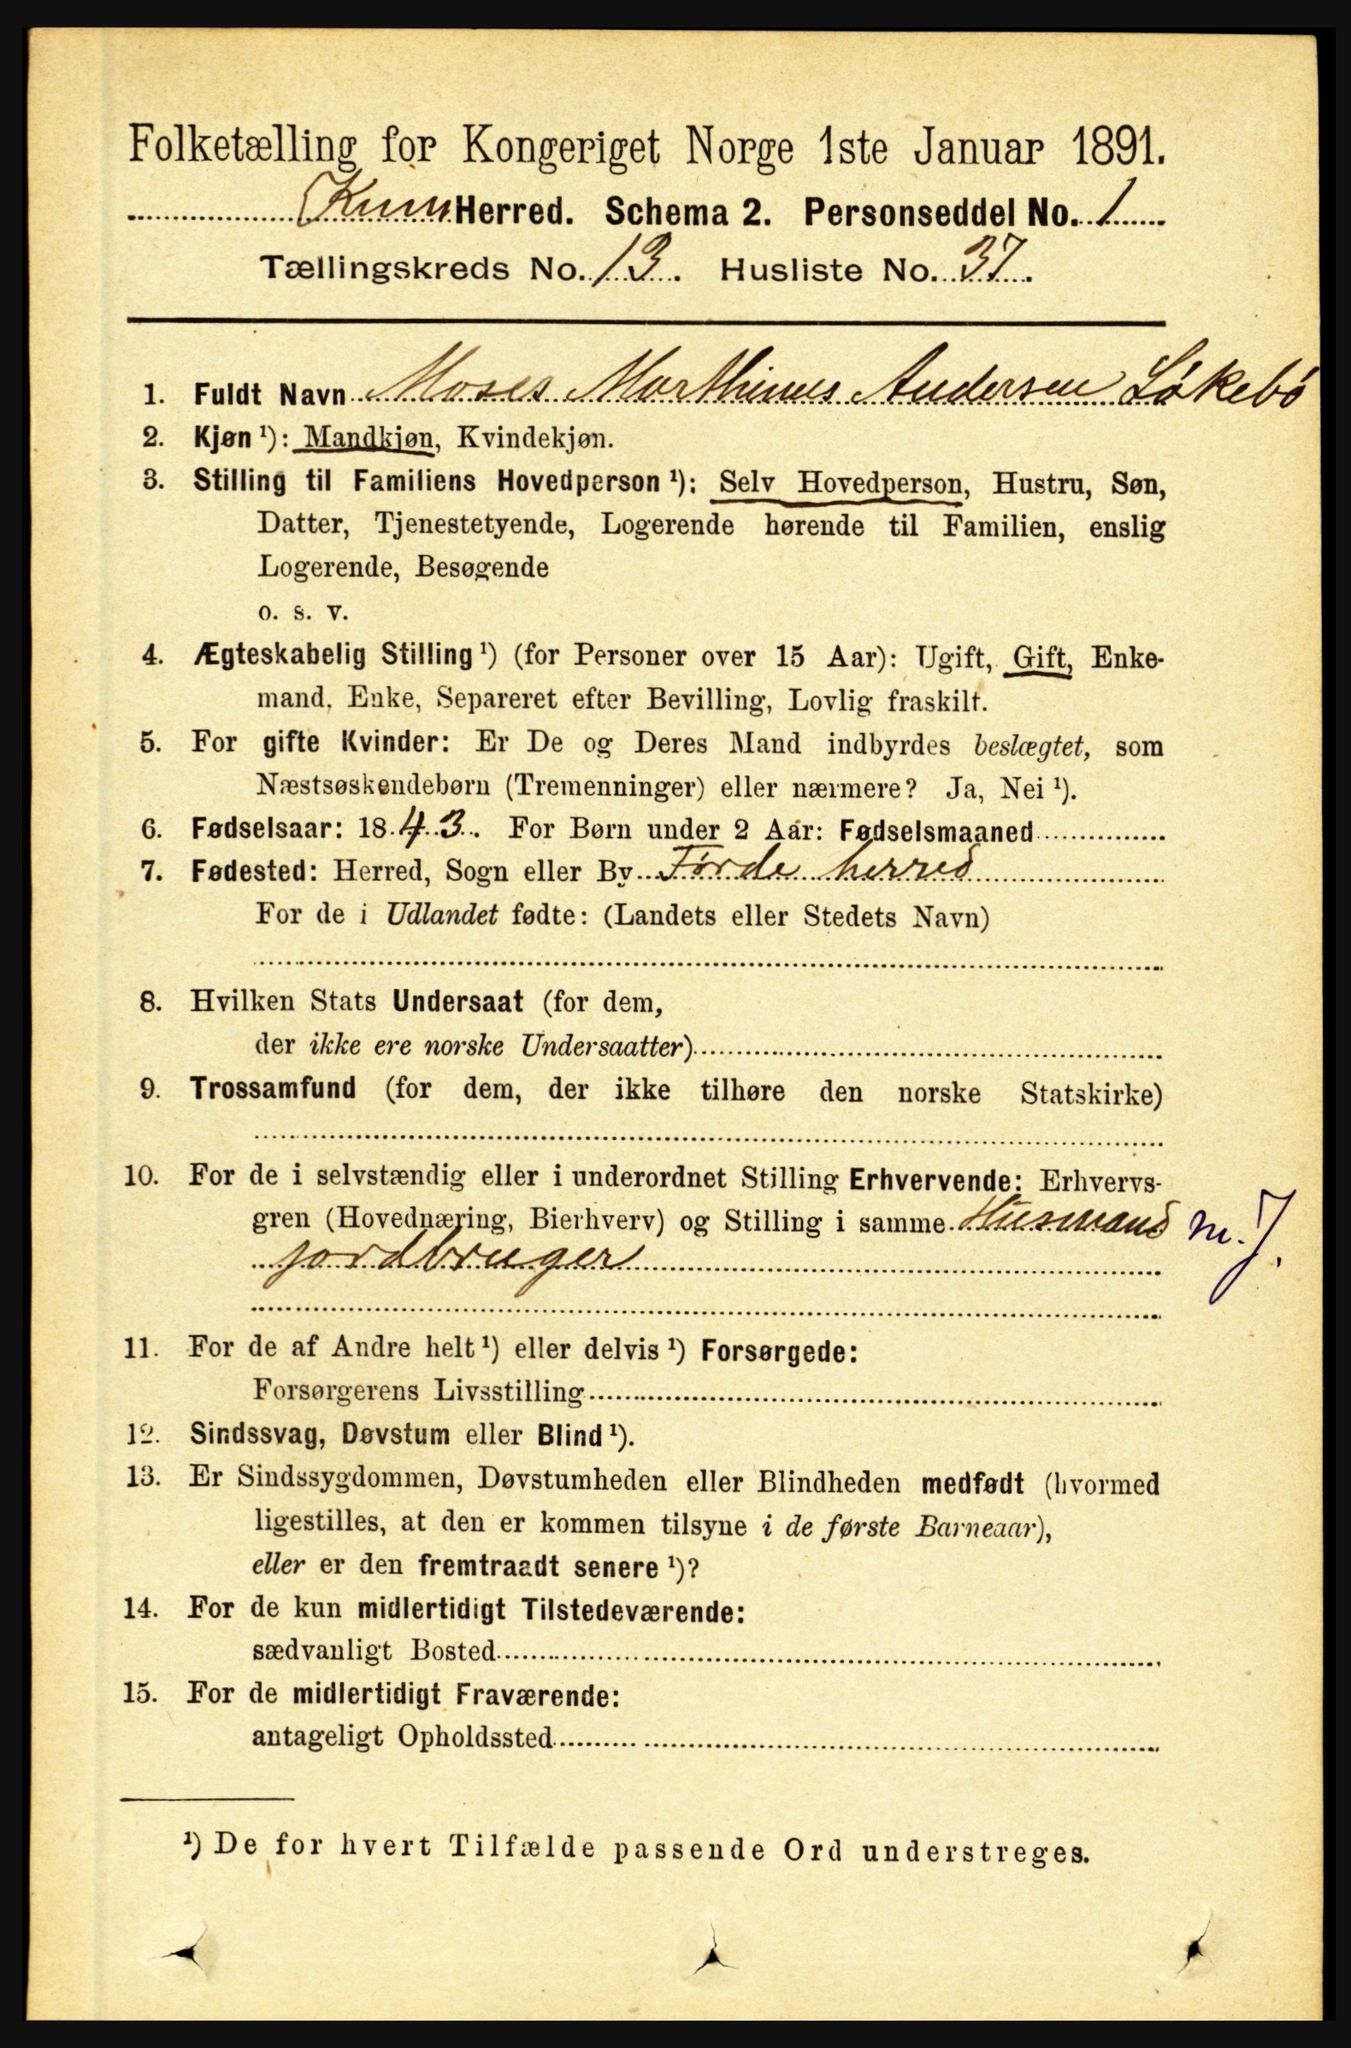 Folketælling for Kongeriget Norge 1ste Januar 1891.
Kinn Herred. Schema 2. Personseddel No. 1
Tællingskreds No. 13. Husliste No. 37.
1. Fuldt Navn Moses Marthinus Andersen Løkebø
2. Kjøn ¹): Mandkjøn, Kvindekjøn.
3. Stilling til Familiens Hovedperson ¹): Selv Hovedperson, Hustru, Søn,
Datter, Tjenestetyende, Logerende hørende til Familien, enslig
Logerende, Besøgende
o. s. v.
4. Ægteskabelig Stilling ¹) (for Personer over 15 Aar): Ugift, Gift, Enke-
mand, Enke, Separeret efter Bevilling, Lovlig fraskilt.
5. For gifte Kvinder: Er De og Deres Mand indbyrdes beslægtet, som
Næstsøskendebørn (Tremenninger) eller nærmere? Ja, Nei ¹).
6. Fødselsaar: 1843. For Børn under 2 Aar: Fødselsmaaned
7. Fødested: Herred, Sogn eller By Førde herred
For de i Udlandet fødte: (Landets eller Stedets Navn)
8. Hvilken Stats Undersaat (for dem,
der ikke ere norske Undersaatter)
9. Trossamfund (for dem, der ikke tilhøre den norske Statskirke)
10. For de i selvstændig eller i underordnet Stilling Erhvervende: Erhvervs-
gren (Hovednæring, Bierhverv) og Stilling i samme Husmand m. J.
jordbruger
11. For de af Andre helt ¹) eller delvis ¹) Forsørgede:
Forsørgerens Livsstilling
12. Sindssvag, Døvstum eller Blind ¹).
13. Er Sindssygdommen, Døvstumheden eller Blindheden medfødt (hvormed
ligestilles, at den er kommen tilsyne i de første Barneaar),
eller er den fremtraadt senere ¹)?
14. For de kun midlertidigt Tilstedeværende:
sædvanligt Bosted
15. For de midlertidigt Fraværende:
antageligt Opholdssted
¹) De for hvert Tilfælde passende Ord understreges.